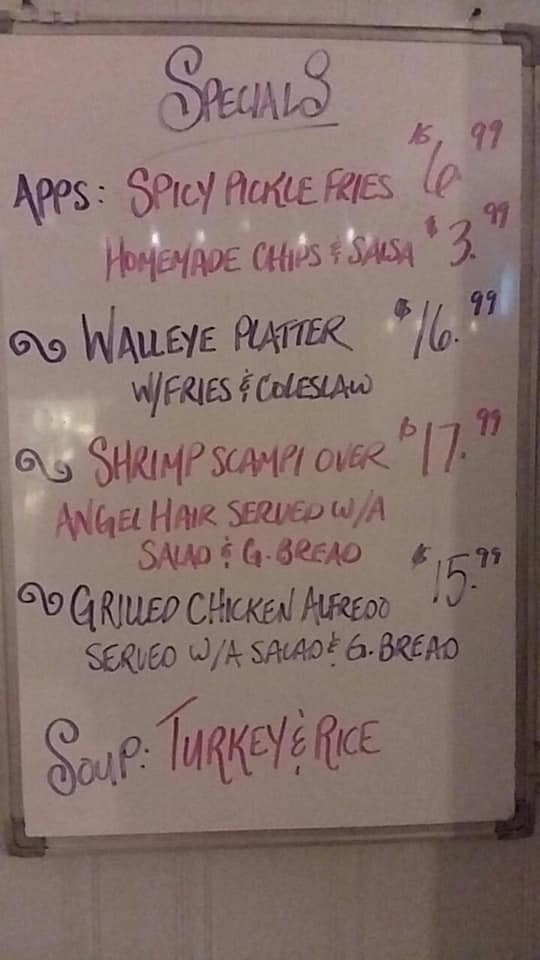 SPECIALS
APPS: SPICY PICKLE FRIES $6.99
HOMEMADE CHIPS & SALSA $3.99
WALLEYE PLATTER $16.99
W/FRIES & COLESLAW
SHRIMP SCAMPI OVER $17.99
ANGEL HAIR SERVED W/A
SALAD & G. BREAD
GRILLED CHICKEN ALFREDO $15.99
SERVED W/A SALAD & G. BREAD
SOUP: TURKEY & RICE